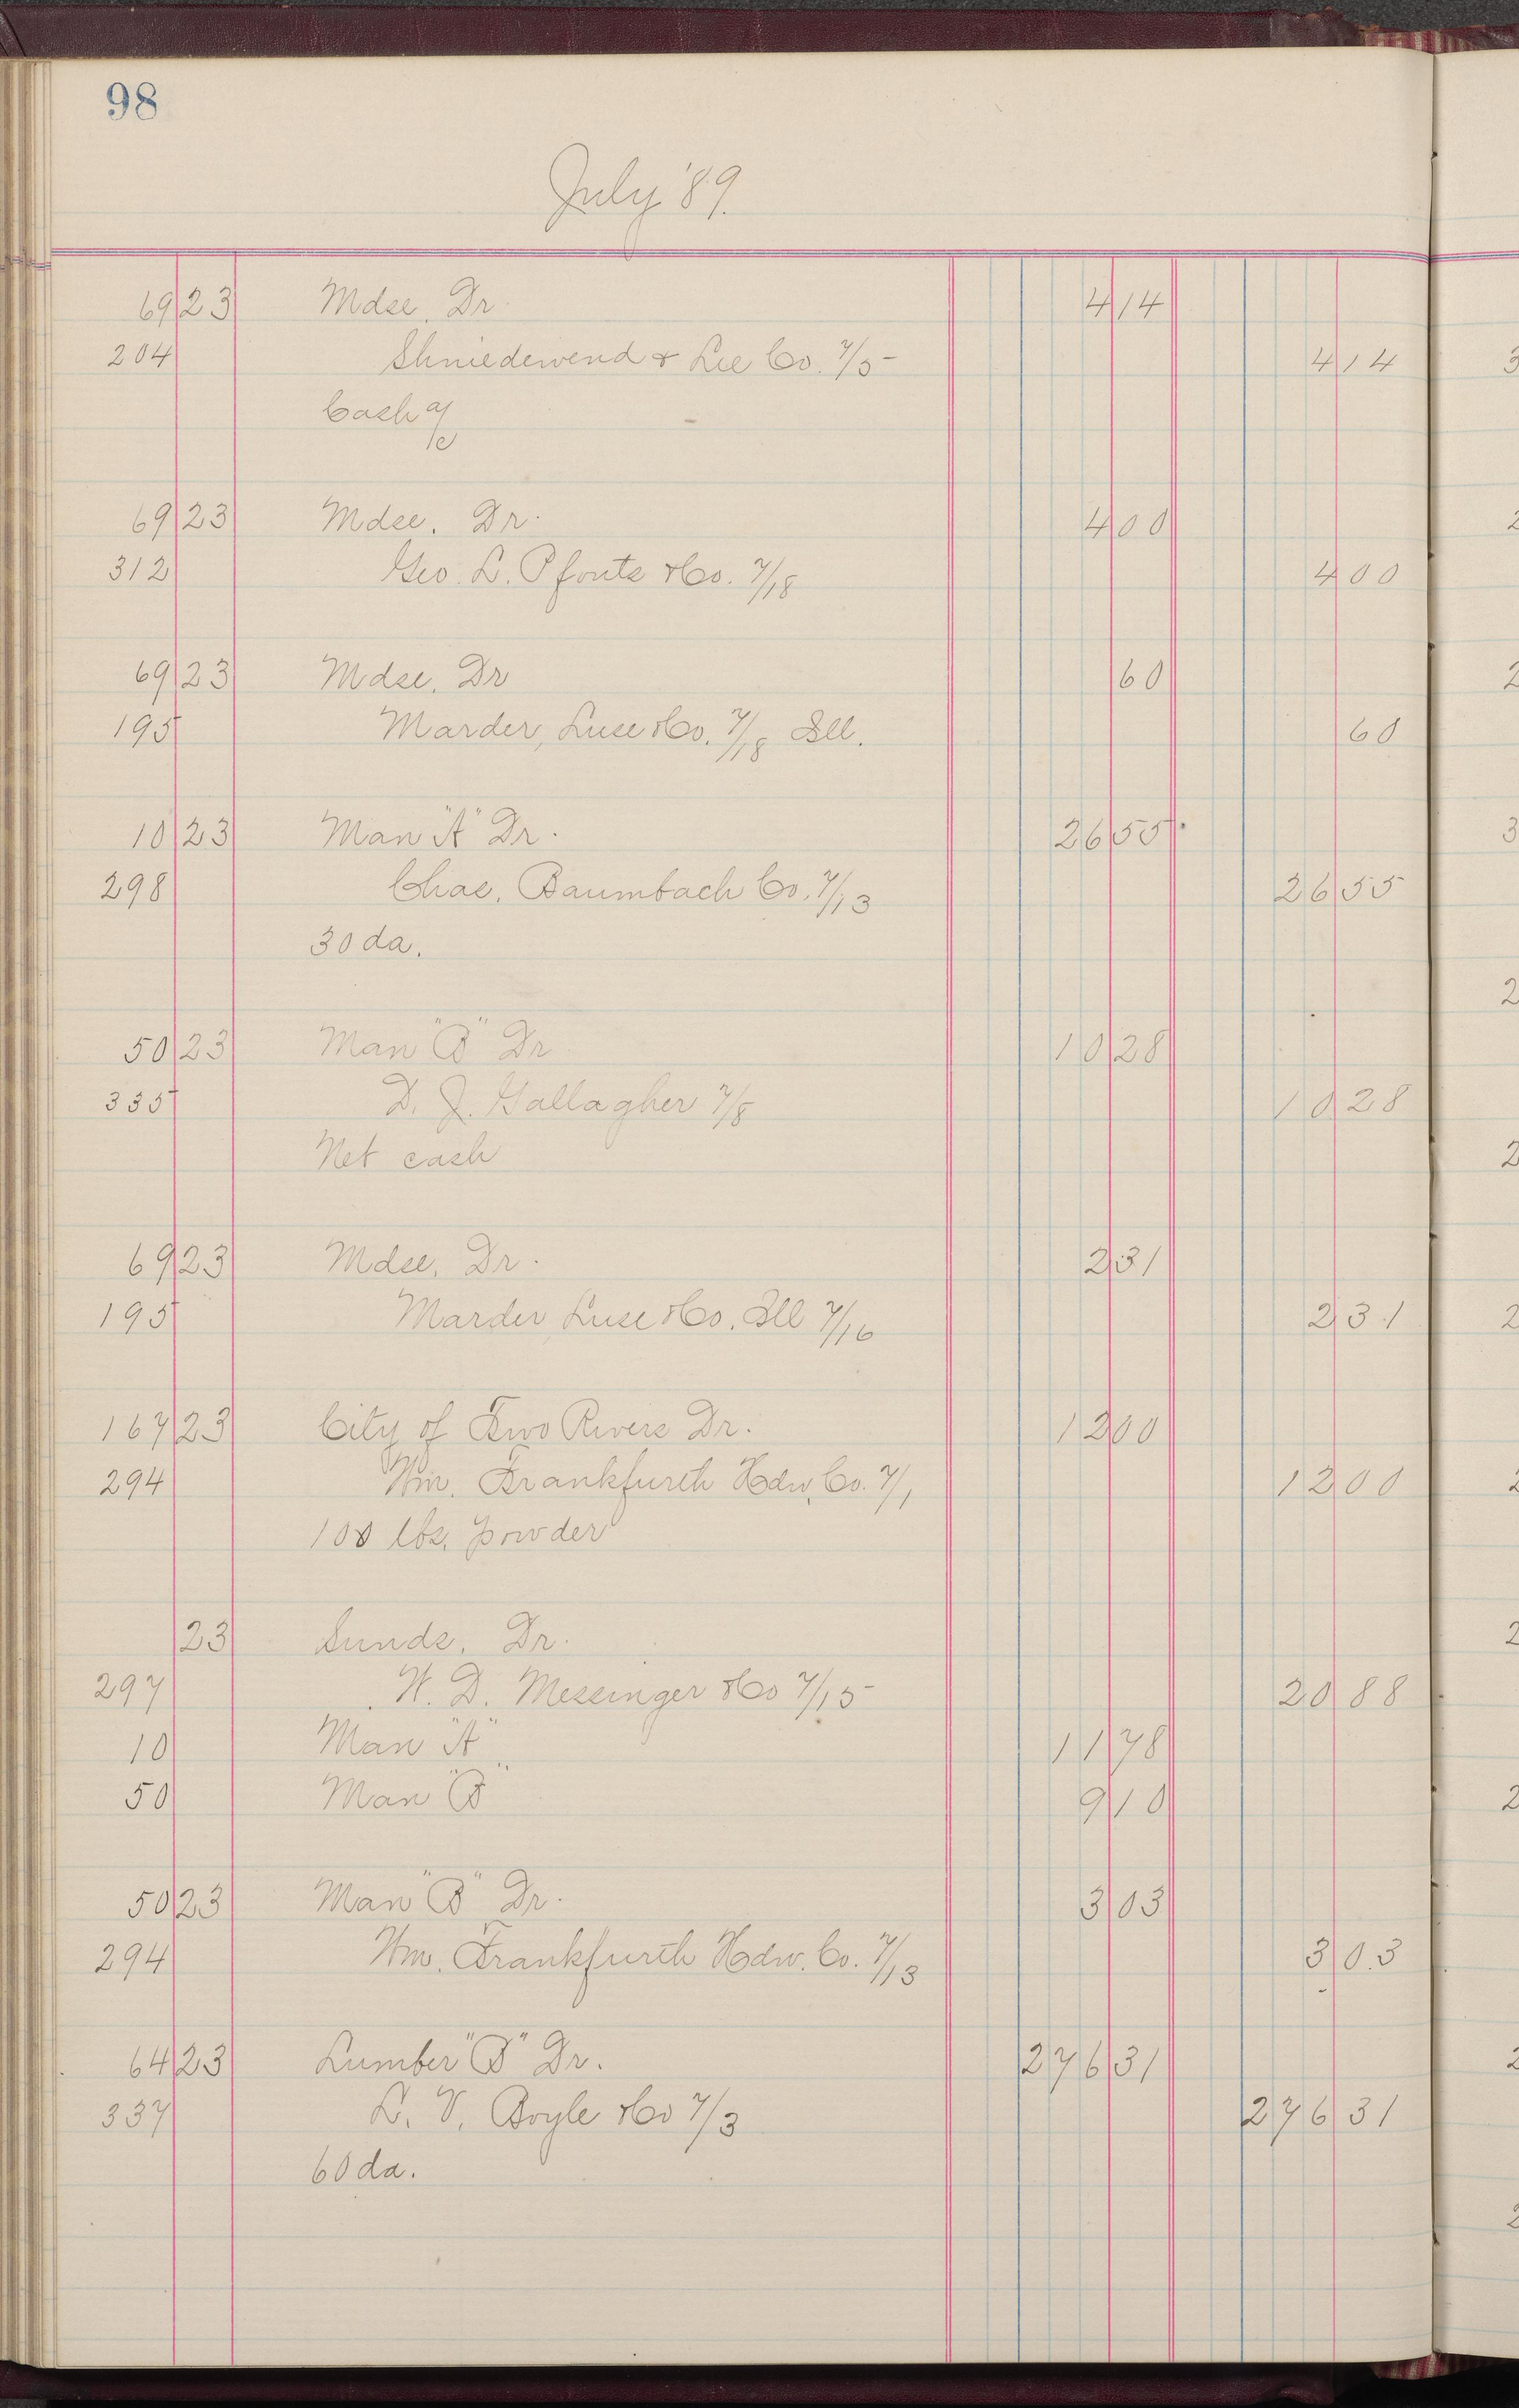 98
July '89.
69 23 Mdse. Dr. 4 14
204 Shniedewend & Lee Co. 7/5 4 14
Cash a/c
69 23 Mdse. Dr. 4 00
312 Geo. L. Pfouts & Co. 7/18 4 00
69 23 Mdse. Dr 60
195 Marder, Luse & Co. 7/18 Ill. 60
10 23 Man "A" Dr. 26 55
298 Chas. Baumbach Co. 7/13 26 55
30 da.
50 23 Man "B" Dr 10 28
335 D. J. Gallagher 7/8 10 28
Net cash
69 23 Mdse. Dr. 2 31
195 Marder Luse & Co. Ill 7/16 2 31
167 23 City of Two Rivers Dr. 12 00
294 Wm. Frankfurth Hdw. Co. 7/1 12 00
100 lbs. powder
23 Sunds. Dr.
297 W. D. Messinger & Co 7/15 20 88
10 Man "A" 11 78
50 Man "B" 9 10
50 23 Man "B" Dr. 3 03
294 Wm. Frankfurth Hdw. Co. 7/13 3 03
64 23 Lumber "B" Dr. 276 31
337 L. V. Boyle & Co 7/3 276 31
60 da.